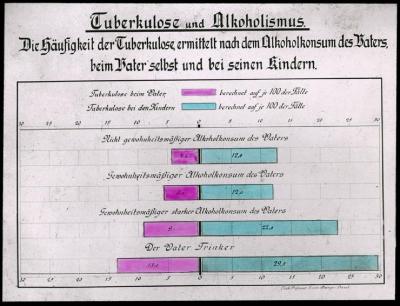 Tuberkulose und Alkoholismus.
Die Häufigkeit der Tuberkulose, ermittelt nach dem Alkoholkonsum des Vaters,
beim Vater selbst und bei seinen Kindern.
Tuberkulose beim Vater, berechnet auf je 100 der Fälle
Tuberkulose bei den Kindern berechnet auf je 100 der Fälle
30 20 10 0 10 20 30
Nicht gewohnheitsmäßiger Alkoholkonsum des Vaters
12,9
Gewohnheitsmäßiger Alkoholkonsum des Vaters
Gewohnheitsmäßiger starker Alkoholkonsum des Vaters
Der Vater Trinker
30 20 10 0 10 20 30